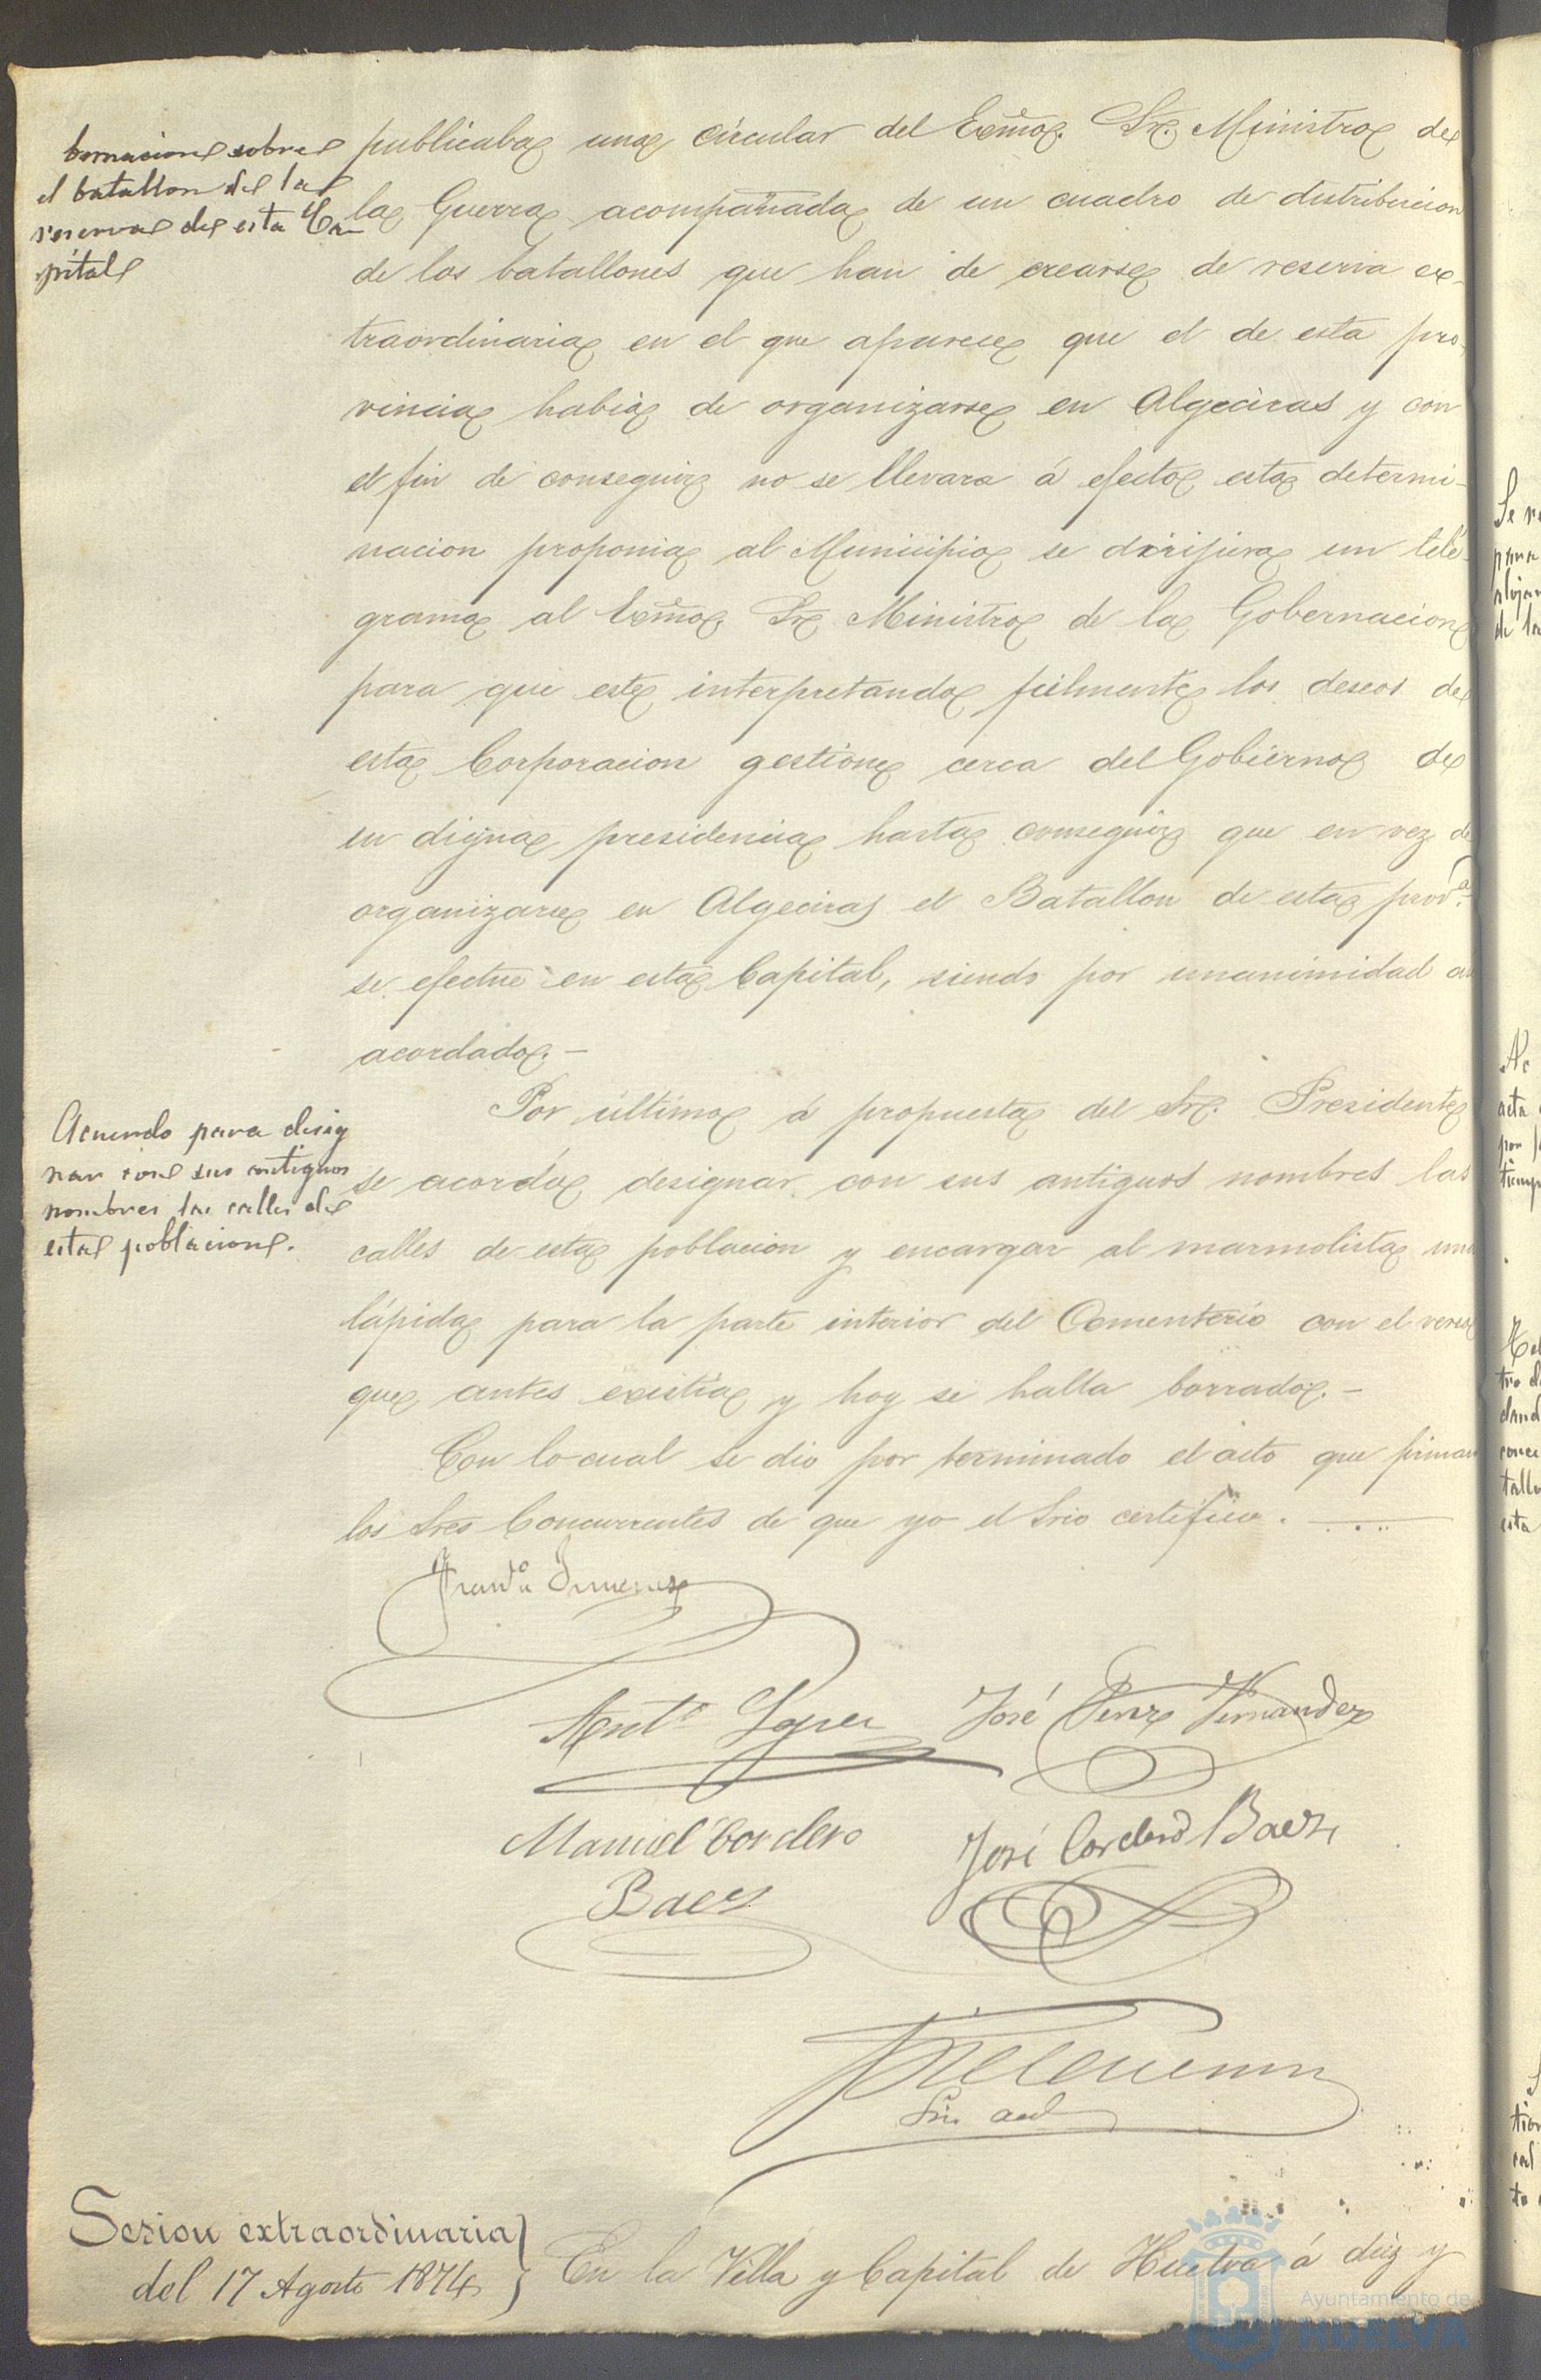 bernacion sobre
el batallon de la
reserva de esta Ca-
pital
publicaba una circular del Exmo. Sr. Ministro de
la Guerra acompañada de un cuadro de distribucion
de los batallones que han de crearse de reserva ex-
traordinaria en el que aparece que el de esta pro-
vincia habia de organizarse en Algeciras y con
el fin de conseguir no se llevara á efecto esta determi-
nacion proponia al Municipio se dirijiera un telé-
grama al Exmo. Sr. Ministro de la Gobernacion
para que este interpretando fielmente los deseos de
esta Corporacion gestione cerca del Gobierno de
su digna presidencia hasta conseguir que en vez de
organizarse en Algeciras el Batallon de esta provª.
se efectue en esta Capital, siendo por unanimidad así
acordado.-
Acuerdo para desig
nar con sus antiguos
nombres las calles de
esta poblacion.
Por último á propuesta del Sr. Presidente
se acordó designar con sus antiguos nombres las
calles de esta poblacion y encargar al marmolista una
lápida para la parte interior del Cementerio con el verso
que antes existia y hoy se halla borrado.-
Con lo cual se dió por terminado el acto que firman
los Sres Concurrentes de que yo el Srio certifico.
Antº Lopez
José Perez Fernandez
Manuel Cordero
Baez
José Cordero Baez
Srio acctl
Sesion extraordinaria
del 17 Agosto 1874
En la Villa y Capital de Huelva á diez y
Ayuntamiento de
HUELVA